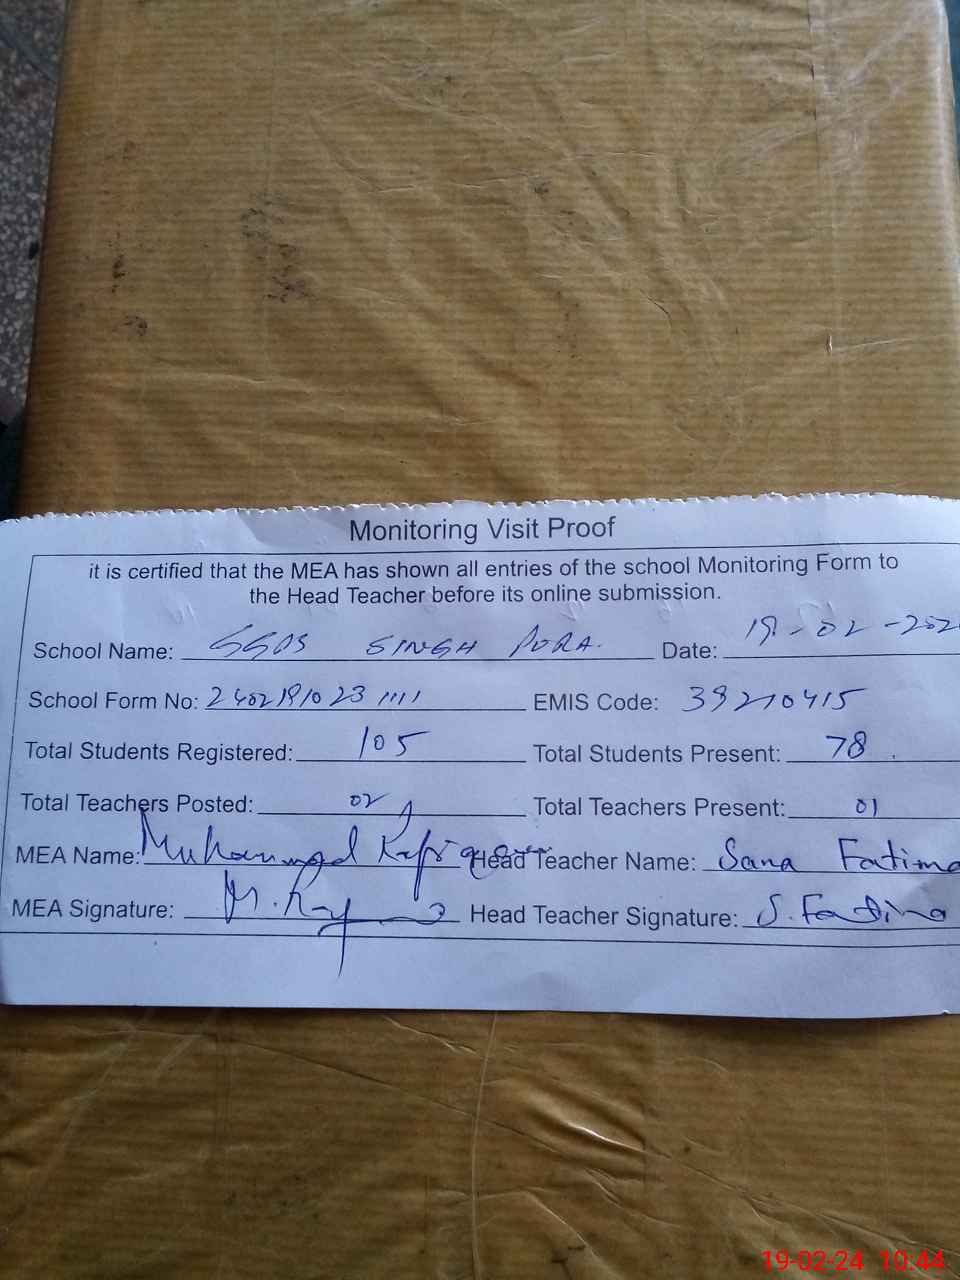 Monitoring Visit Proof
it is certified that the MEA has shown all entries of the school Monitoring Form to
the Head Teacher before its online submission.
School Name: SINGH PURA. Date: 19-02-202
School Form No: EMIS Code: 39210415
Total Students Registered: 105 Total Students Present: 78
Total Teachers Posted: 02 Total Teachers Present: 01
MEA Name: Muhammad Head Teacher Name: Sana Fatima
MEA Signature: Head Teacher Signature: S. Fatima
19-02-24 10:44